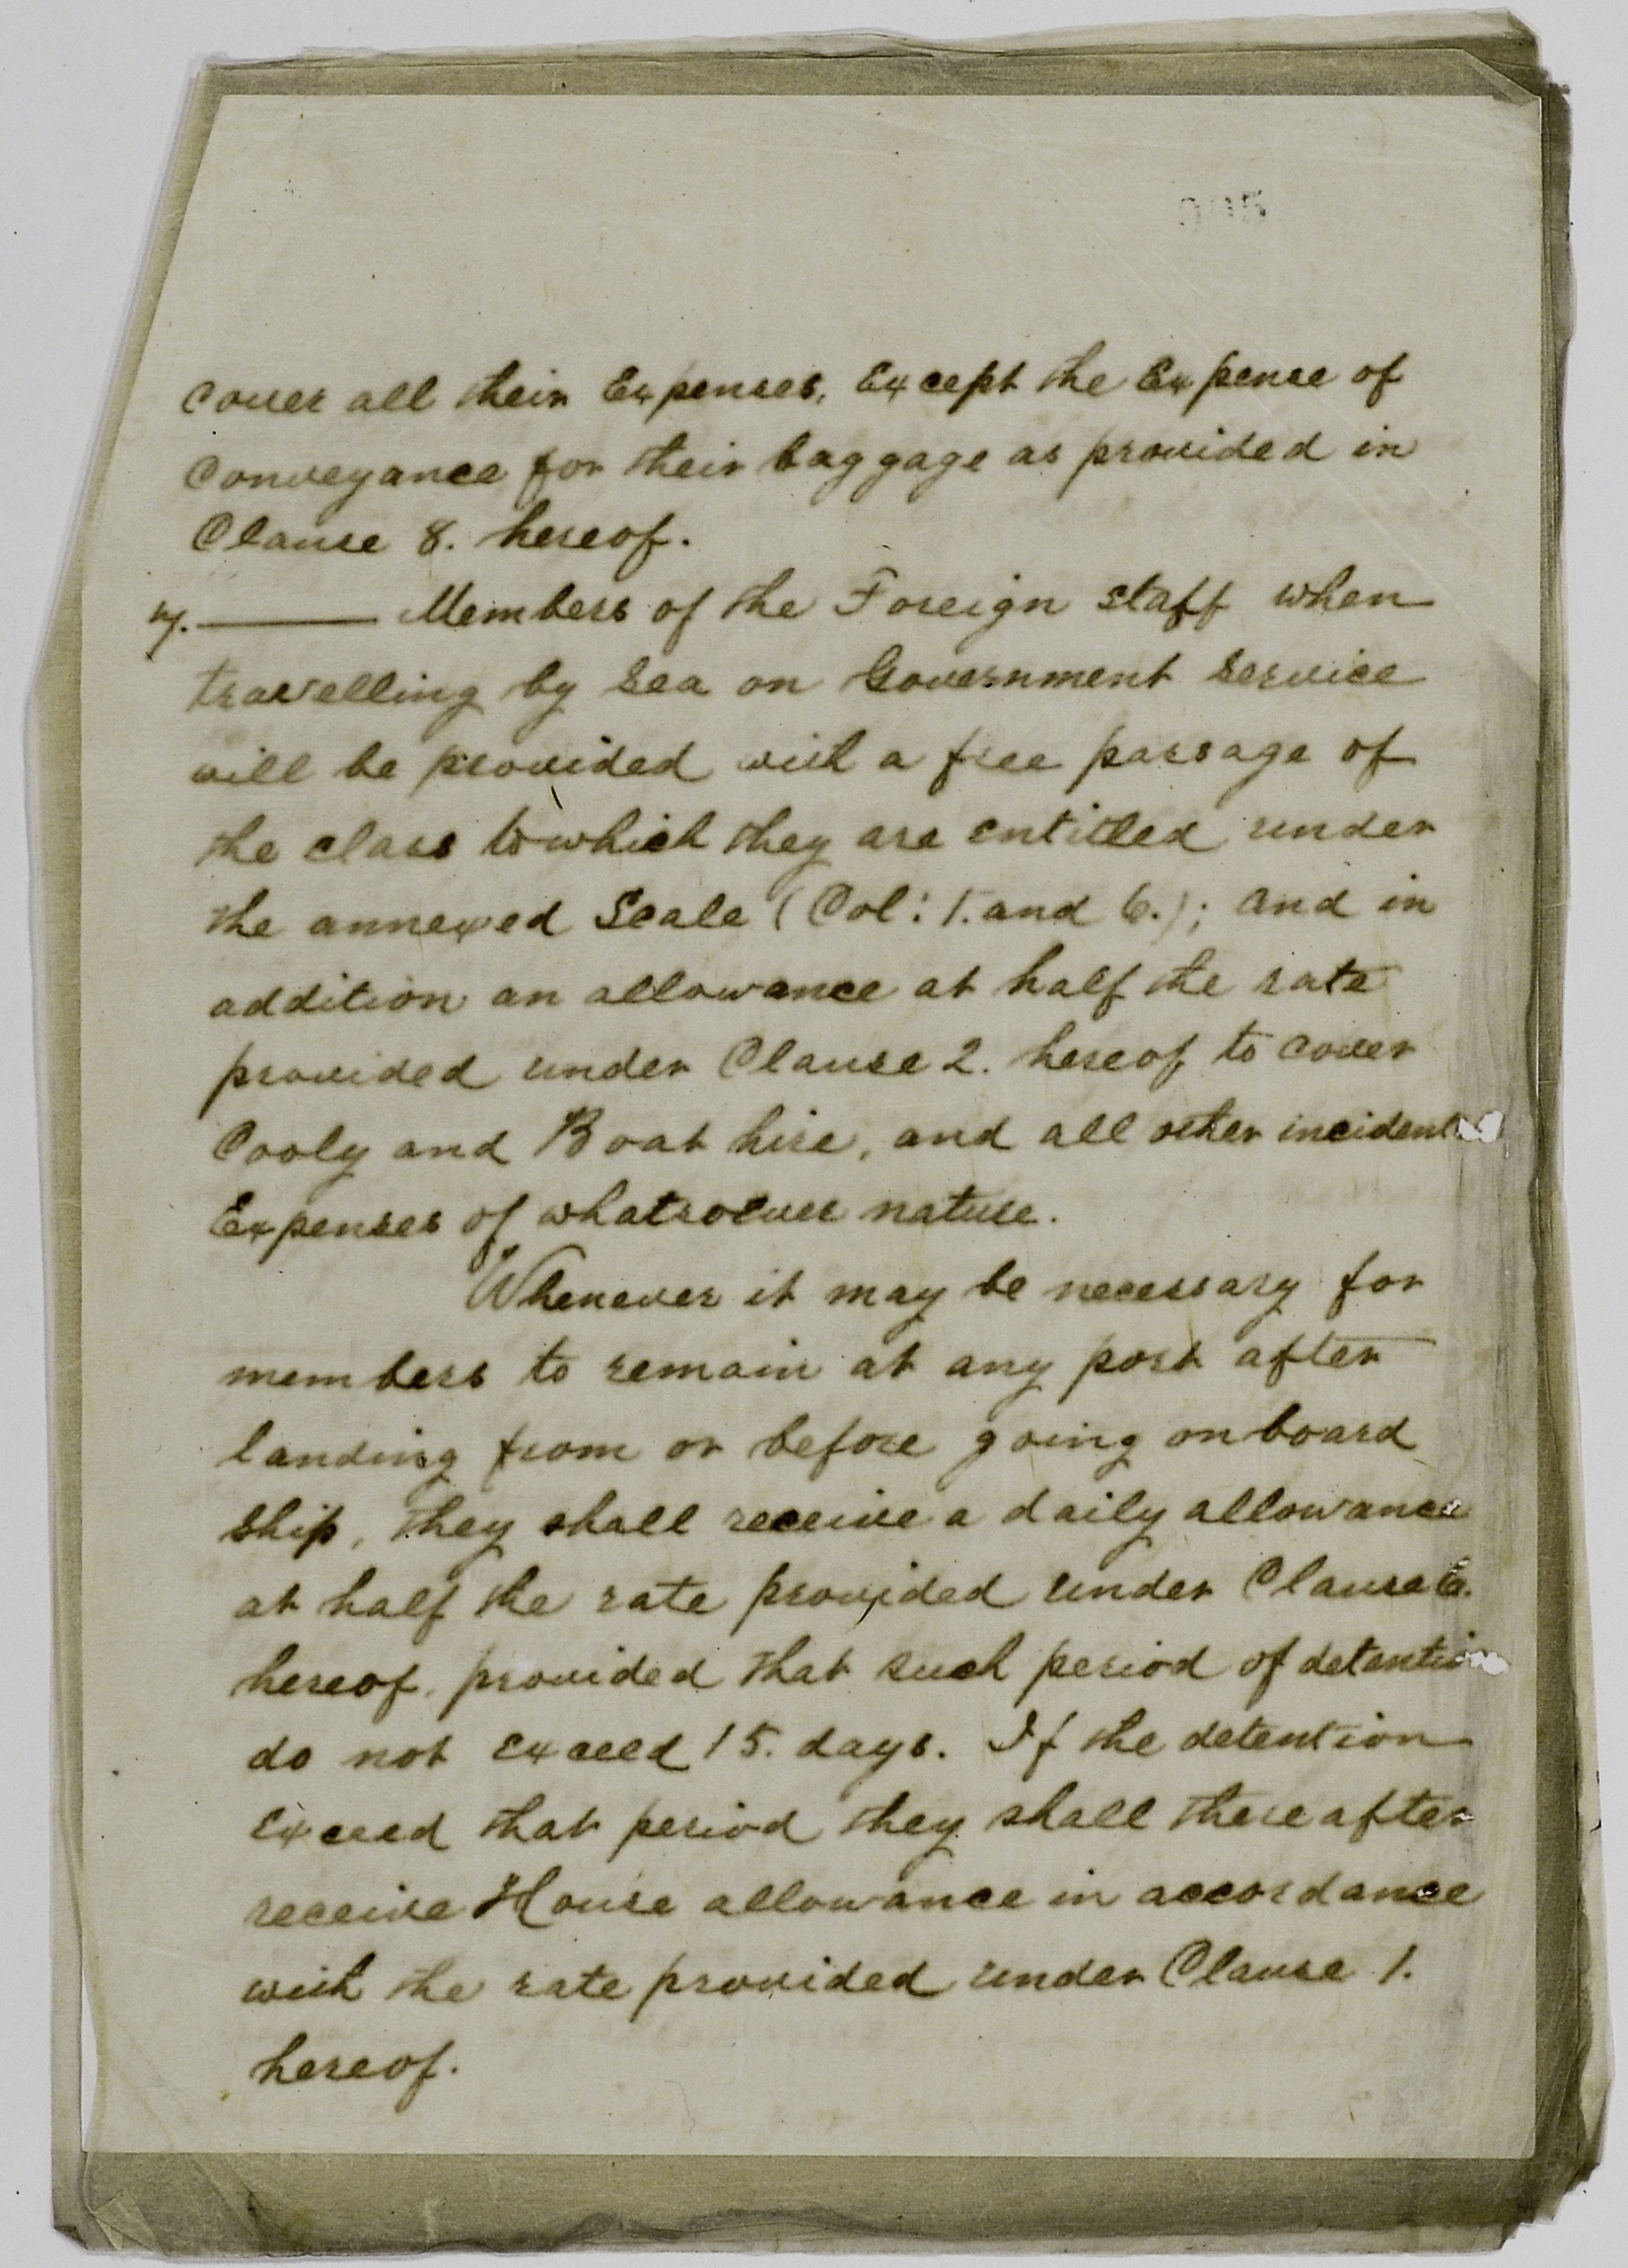 cover all their Expenses, Except the Expense of
Conveyance for their baggage as provided in
Clause 8. hereof.
7. Members of the Foreign staff when
travelling by Sea on Government Service
will be provided with a free passage of
the class to which they are entitled under
the annexed Scale (Col: 1. and 6.); and in
addition an allowance at half the rate
provided under Clause 2. hereof to cover
Cooly and Boat hire, and all other
Expenses of whatsoever nature.
Whenever it may be necessary for
members to remain at any port after
landing from or before going on board
Ship, they shall receive a daily allowance
at half the rate provided under Clause 6.
hereof, provided that such period of detention
do not Exceed 15. days. If the detention
Exceed that period they shall thereafter
receive House allowance in accordance
with the rate provided under Clause 1.
hereof.